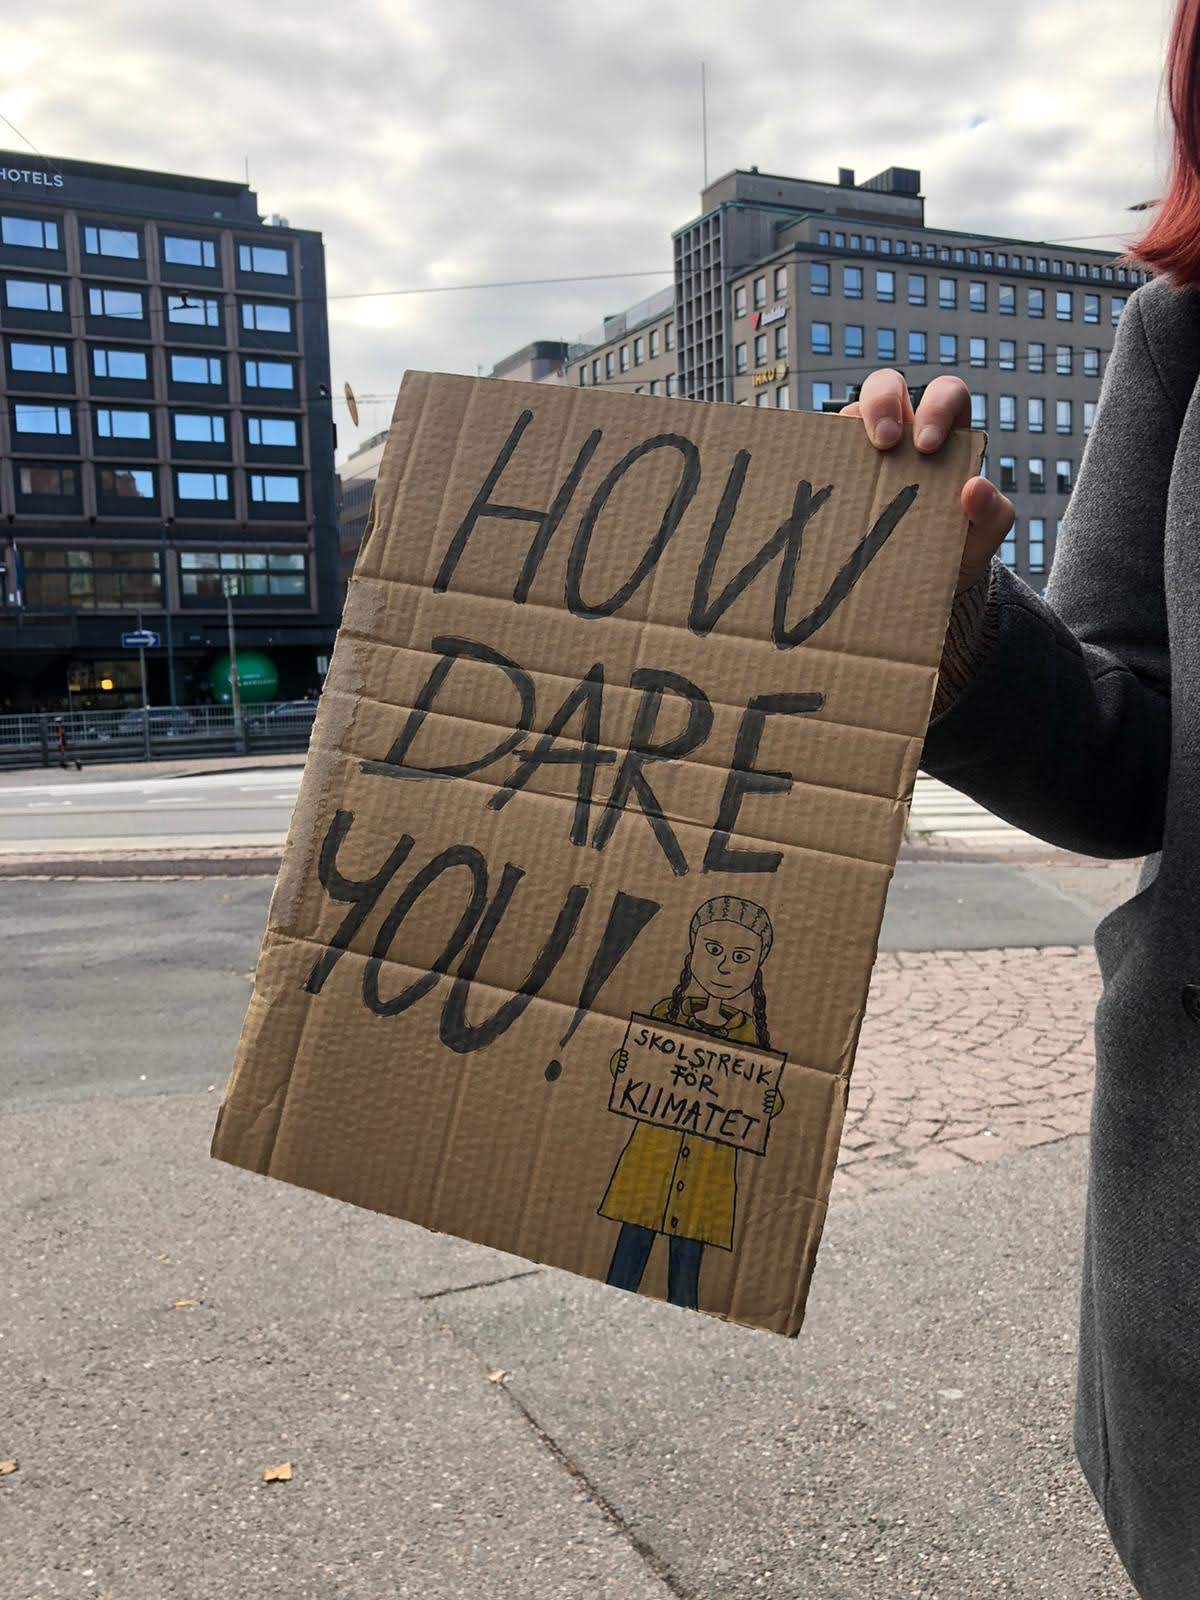 HOTELS
HOW
DARE
YOU!
SKOLSTREJK
FÖR
KLIMATET